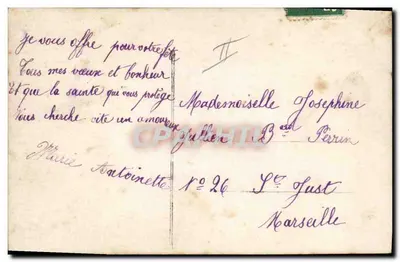 Je vous offre pour votre fête
Tous mes vœux et bonheur
Et que la sainte qui vous protège
Vous cherche vite un amoureux
Marie Antoinette
II
Mademoiselle Josephine
Jullien Bard Perrin
No 26 St Just
Marseille